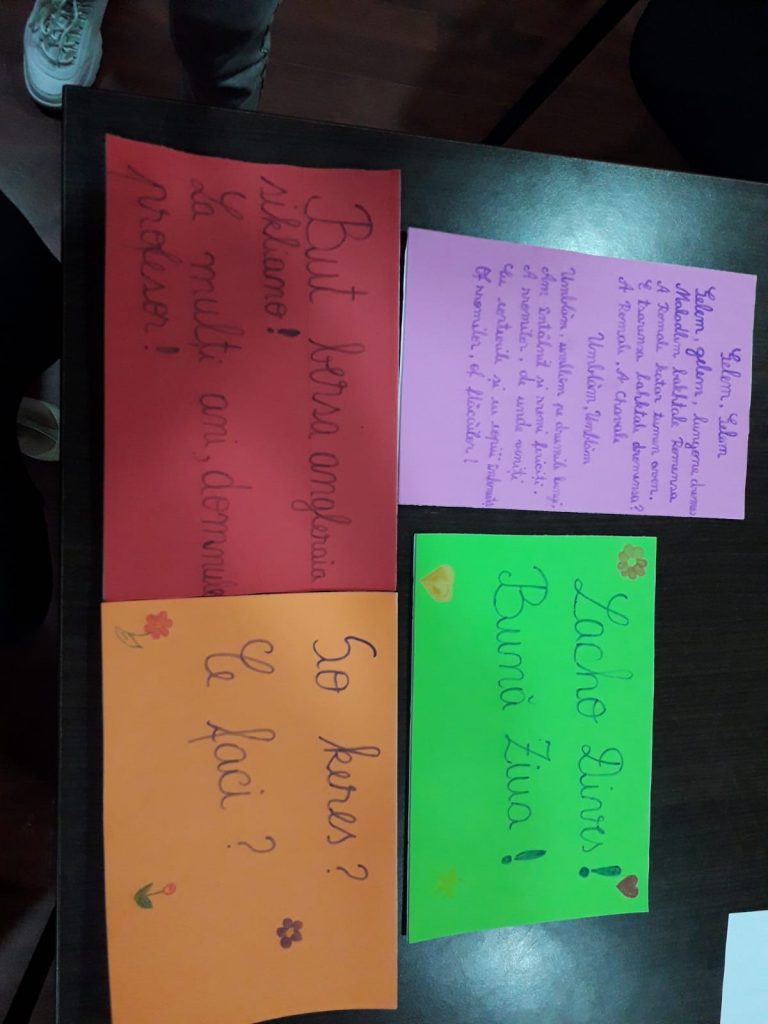 Gelem, Gelem
Gelem, gelem, lungone dromesa
Maladilem bakhtale Romensa
A Romale katar tumen aven,
E tsarensa bahktale dromensa?
A Romale, A Chavale
Umblăm, Umblăm
Umblăm, umblăm pe drumuri lungi.
Am întâlnit și rromi fericiți.
A rromilor, de unde veniți
Cu corturile și cu copiii înfometați
Of rromilor, of flăcăilor!
But bersa angleraia
sikliamo!
La mulți ani, domnule
profesor!
Lacho Dives!
Bună Ziua!
So keres?
Ce faci?